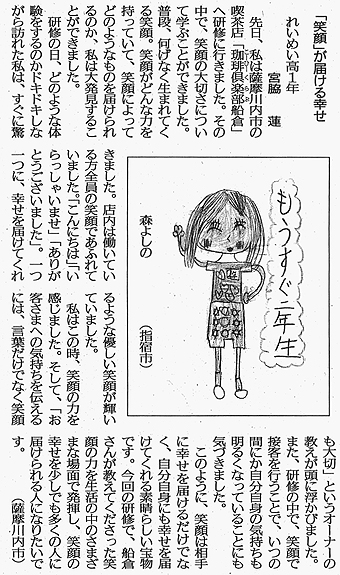 「笑顔」が届ける幸せ
れいめい高1年
宮脇　蓮
先日、私は薩摩川内市の
喫茶店「珈琲倶楽部船倉」
へ研修に行きました。その
中で、笑顔の大切さについ
て学ぶことができました。
普段、何げなく生まれてく
る笑顔。笑顔がどんな力を
持っていて、笑顔によって
どのようなものを届けられ
るのか、私は大発見するこ
とができました。
研修の日、どのような体
験をするのかドキドキしな
がら訪れた私は、すぐに驚
きました。店内は働いてい
る方全員の笑顔であふれて
いました。「こんにちは」「い
らっしゃいませ」「ありが
とうございました」。一つ
一つに、幸せを届けてくれ
るような優しい笑顔が輝い
ていました。
私はこの時、笑顔の力を
感じました。そして、「お
客さまへの気持ちを伝える
には、言葉だけでなく笑顔
も大切」というオーナーの
教えが頭に浮かびました。
また、研修の中で、笑顔で
接客を行うことで、いつの
間にか自分自身の気持ちも
明るくなっていることにも
気づきました。
このように、笑顔は相手
に幸せを届けるだけでな
く、自分自身にも幸せを届
けてくれる素晴らしい宝物
です。今回の研修で、船倉
さんが教えてくださった笑
顔の力を生活の中のさまざ
まな場面で発揮し、笑顔の
幸せを少しでも多くの人に
届けられる人になりたいで
す。　（薩摩川内市）
もうすぐ二年生
森よしの　（指宿市）